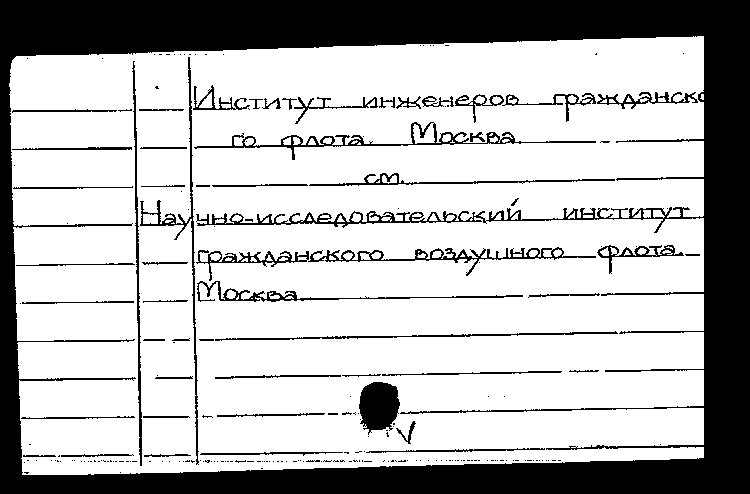 Институт инженеров гражданско
го флота. Москва.
см.
Научно-исследовательский институт
гражданского воздушного флота.
Москва.